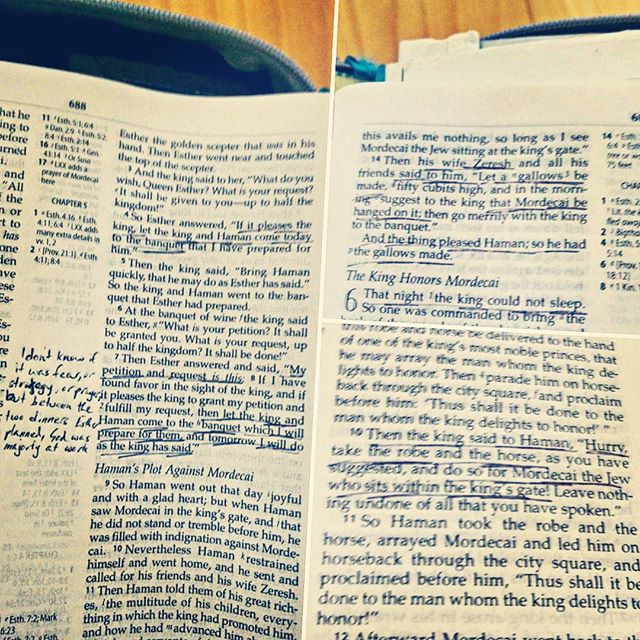 688
hat he
ing to
before
urned
i.
and
"All
of the
n or
t to
has
one
den
ave
ese
Es-
is-
ou
re
11 Esth. 5:1; 6:4
Dan. 2:9
8:4 Judg. 2:14
16 Esth. 5:1
43:14
17 LXX adds a
prayer of Mordecai
here
CHAPTER 5
1 Esth. 4:16 Esth.
4:11; 6:4 LXX adds
many extra details in
vv. 1, 2
2 [Prov. 21:1] Esth.
4:11; 8:4
I don't know if
it was fear, or
strategy, or prayer
but between the
two dinners Esther
planned, God was
majorly at work
Esth. 7:2; Mark
6:23
Esther the golden scepter that was in his
hand. Then Esther went near and touched
the top of the scepter.
3 And the king said to her, "What do you
wish, Queen Esther? What is your request?
It shall be given to you—up to half the
kingdom!"
4 So Esther answered, "If it pleases the
king, let the king and Haman come today
to the banquet that I have prepared for
him."
5 Then the king said, "Bring Haman
quickly, that he may do as Esther has said."
So the king and Haman went to the ban-
quet that Esther had prepared.
6 At the banquet of wine the king said
to Esther, "What is your petition? It shall
be granted you. What is your request, up
to half the kingdom? It shall be done!"
7 Then Esther answered and said, "My
petition and request is this: 8 If I have
found favor in the sight of the king, and if
it pleases the king to grant my petition and
fulfill my request, then let the king and
Haman come to the banquet which I will
prepare for them, and tomorrow I will do
as the king has said."
Haman's Plot Against Mordecai
9 So Haman went out that day joyful
and with a glad heart; but when Haman
saw Mordecai in the king's gate, and that
he did not stand or tremble before him, he
was filled with indignation against Morde-
cai. 10 Nevertheless Haman restrained
himself and went home, and he sent and
called for his friends and his wife Zeresh.
11 Then Haman told them of his great rich-
es, the multitude of his children, every-
thing in which the king had promoted him,
and how he had advanced him
this avails me nothing, so long as I see
Mordecai the Jew sitting at the king's gate."
14 Then his wife Zeresh and all his
friends said to him, "Let a gallows be
made, fifty cubits high, and in the morn-
ing suggest to the king that Mordecai be
hanged on it; then go merrily with the king
to the banquet."
And the thing pleased Haman; so he had
the gallows made.
The King Honors Mordecai
6 That night the king could not sleep.
So one was commanded to bring the
14
6:4
75 feet
CHA
1
2
5:14
6 [Prov.
18:12]
8 1 Kin.
this robe and horse be delivered to the hand
of one of the king's most noble princes, that
he may array the man whom the king de-
lights to honor. Then parade him on horse-
back through the city square, and proclaim
before him: 'Thus shall it be done to the
man whom the king delights to honor!' "
10 Then the king said to Haman, "Hurry,
take the robe and the horse, as you have
suggested, and do so for Mordecai the Jew
who sits within the king's gate! Leave noth-
ing undone of all that you have spoken."
11 So Haman took the robe and the
horse, arrayed Mordecai and led him on
horseback through the city square, and
proclaimed before him, "Thus shall it be
done to the man whom the king delights to
honor!"
12 Afterward Mordecai went back to